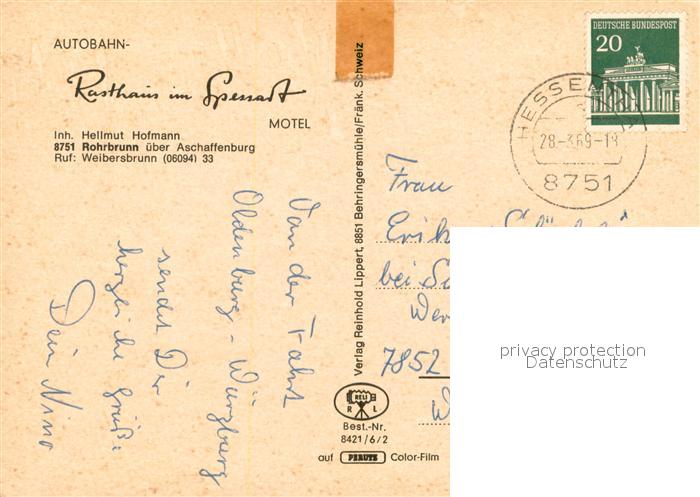 AUTOBAHN-
Rasthaus im Spessart
MOTEL
Inh. Hellmut Hofmann
8751 Rohrbrunn über Aschaffenburg
Ruf: Weibersbrunn (06094) 33
Von der Fahrt
Oldenburg - Würzburg
sendet Dir
herzliche Grüße
Dein Nino
Verlag Reinhold Lippert, 8851 Behringersmühle/Fränk. Schweiz
RELI
R L
Best.-Nr.
8421/6/2
auf PERUTZ Color-Film
DEUTSCHE BUNDESPOST
20
28.-3.69-18
8751
Frau
bei
7852
privacy protection
Datenschutz